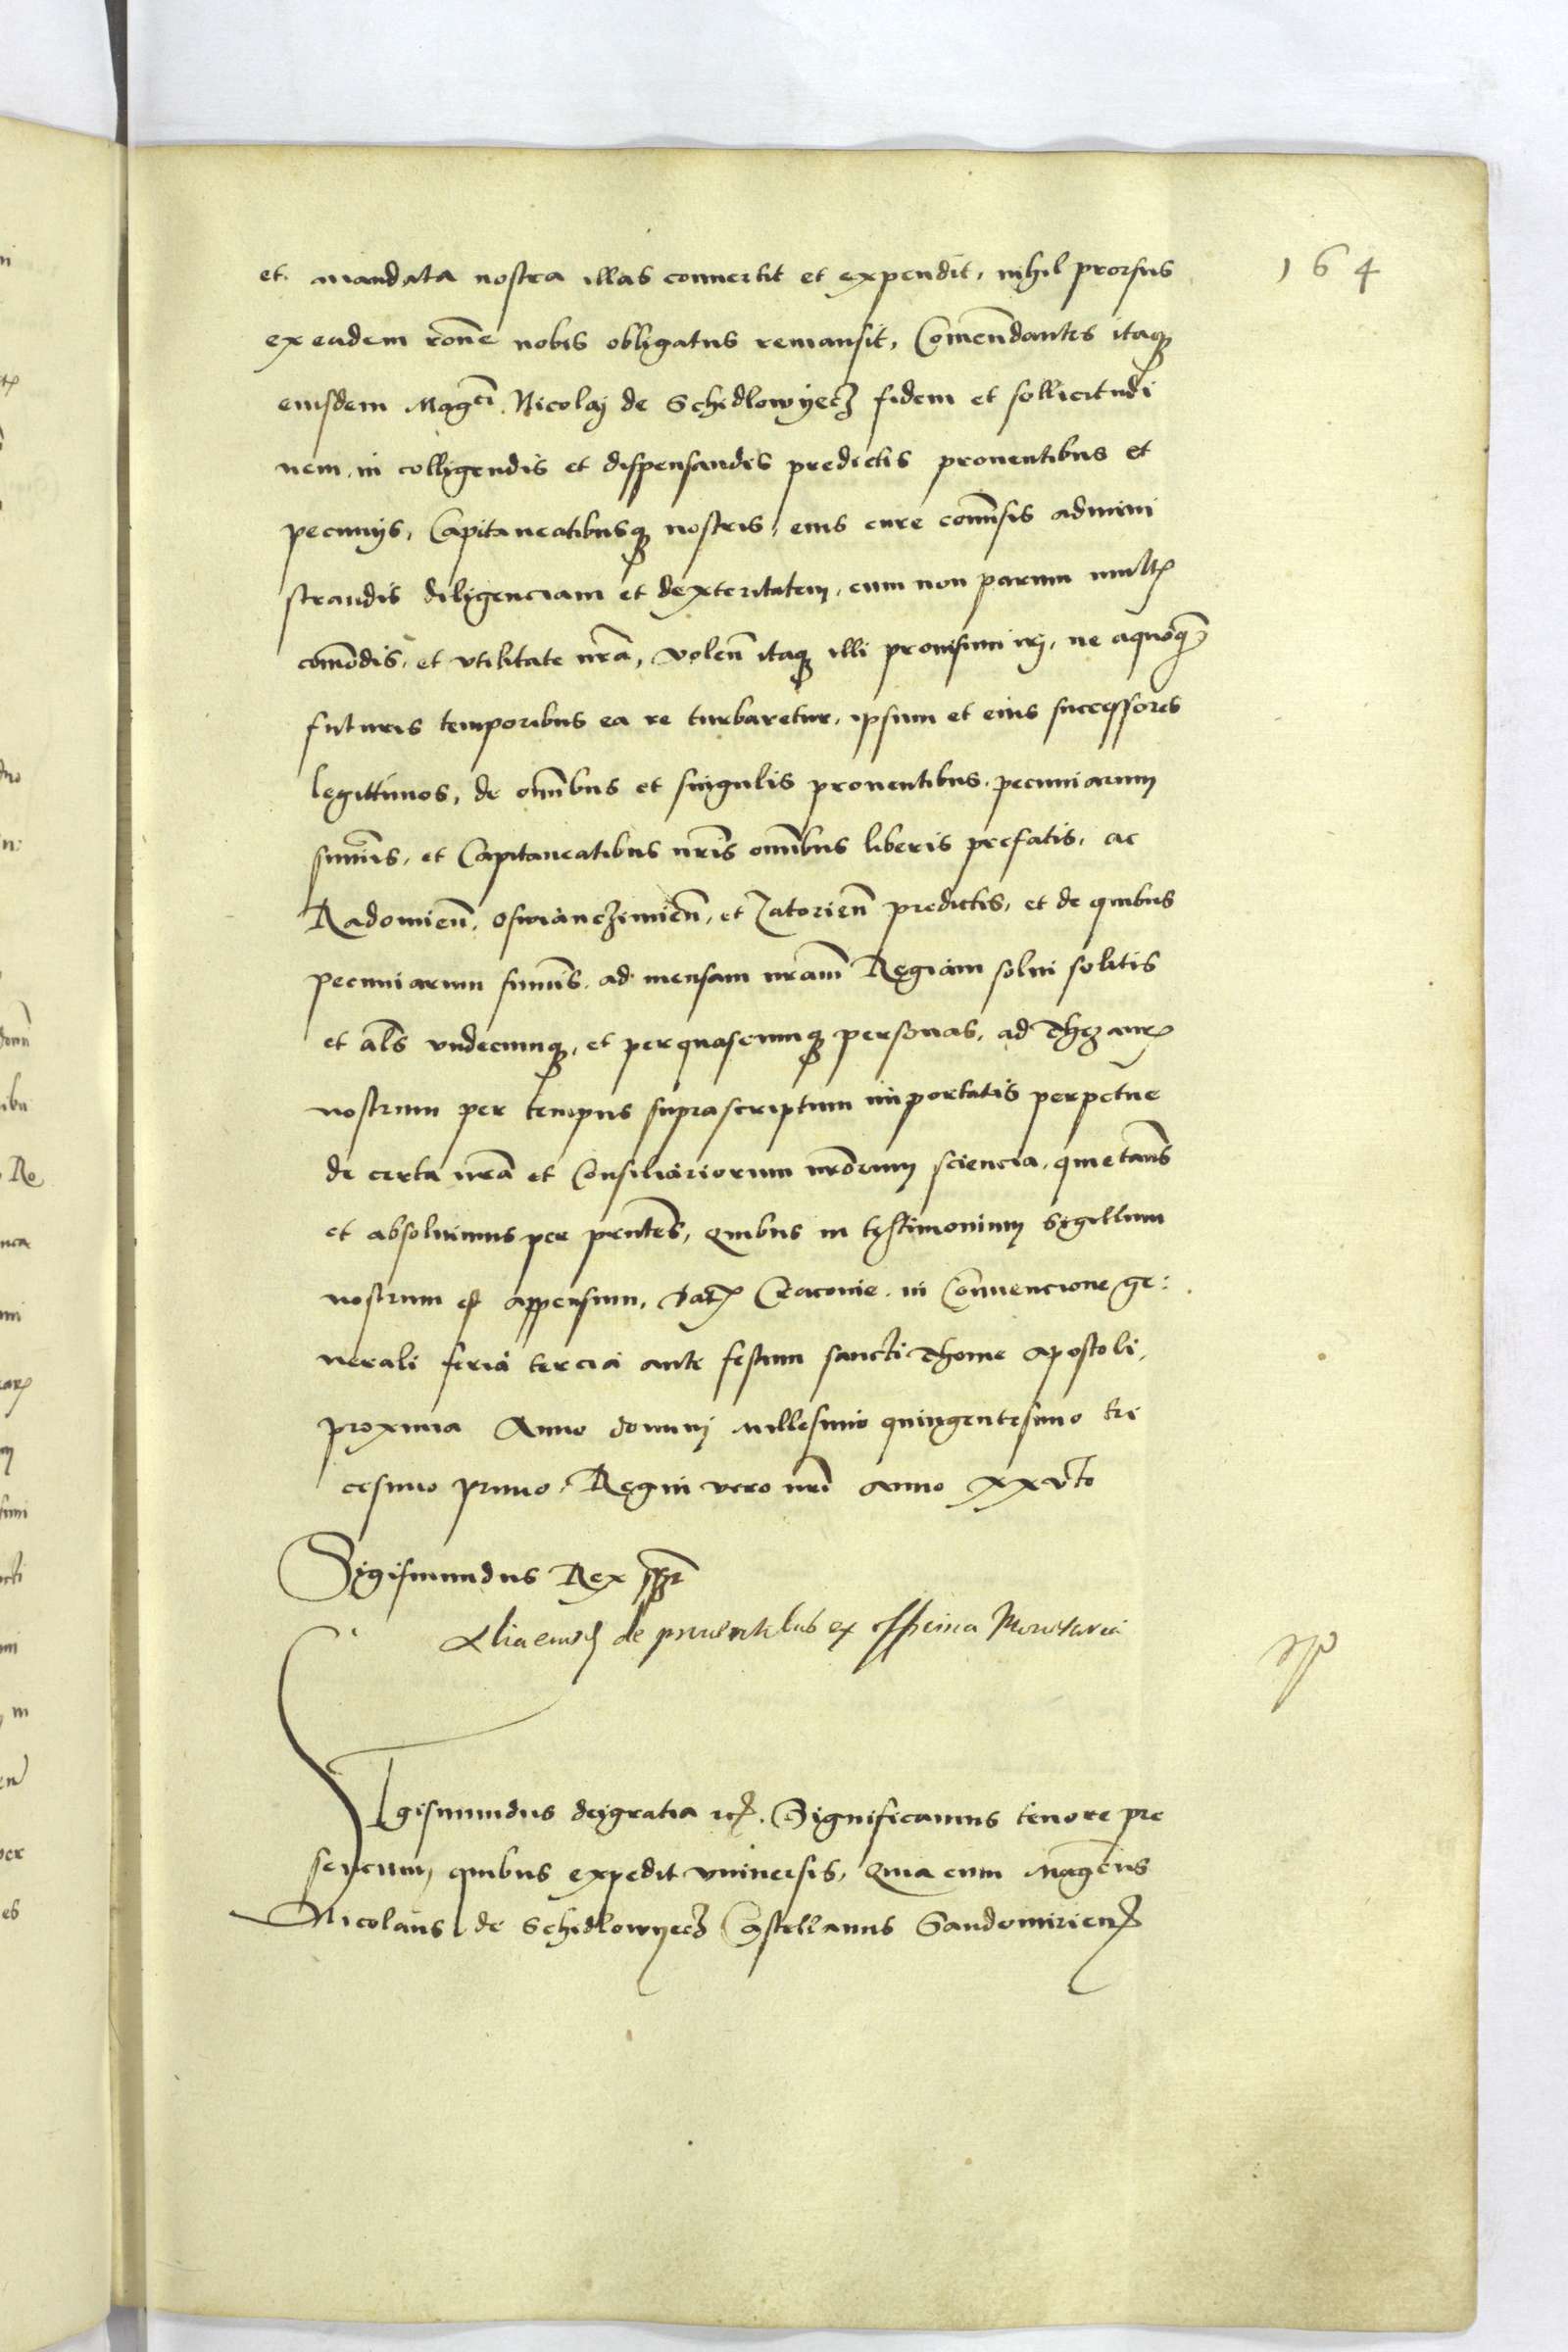 164
et mandata nostra illas conuertit et expendit, nihil prorsus
ex eadem rone nobis obligatus remansit, Comendantes itaq
eiusdem Magci Nicolaj de Schidlowyecz fidem et sollicitudi
nem in colligendis et dispensandis predictis prouentibus et
pecunijs, Capitaneatibusq nostris, eius cure comissis admini
strandis diligenciam et dexteritatem, cum non parum mult
comodis, et vtilitate nra, volen itaq illi prouisum irj, ne aquoq
futuris temporibus ea re turbaretur, ipsum et eius successores
legittimos, de omibus et singulis prouentibus pecuniarum
sumis, et Capitaneatibus nris omibus liberis prefatis, ac
Radomien, osvianczimien, et Zatorien predictis, et de quibus
pecuniarum sumis ad mensam nram Regiam solui solitis
et als vndecumq, et per quascumq personas, ad Thezaur
nostrum per tempus suprascriptum importatis perpetue
de certa nra et Consiliariorum nrorum sciencia, quietams
et absoluimus per pntes, Quibus in testimonium Sigillum
nostrum est appensum, Dat Cracouie in Conuencione ge:
nerali feria tercia ante festum sancti Thome apostoli,
proxima Anno dominj millesimo quingentesimo tri
cesimo primo, Regni vero nri anno xxvto
Sigismundus Rex sspt
Alia eiusd de prouentibus ex officina Monetaria
Sigismundus dei gratia etc. Significamus tenore pre
sencium, quibus expedit vniuersis, Quia cum Magcus
Nicolaus de Schidlowyecz Castellanus Sandomirien